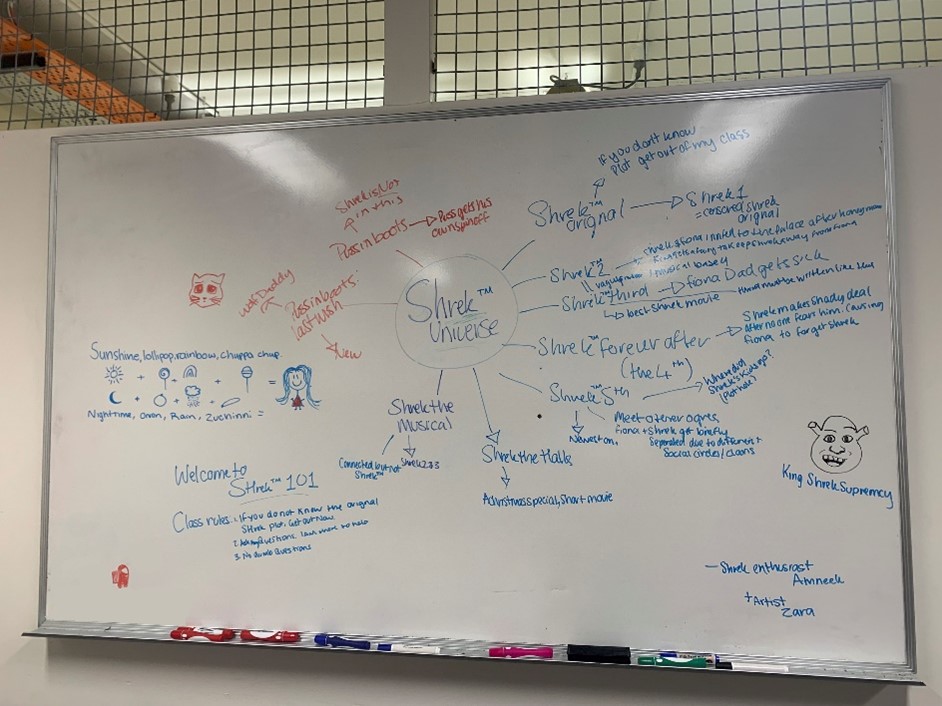 If you don't know
Plot get out of my class
Shrek is Not
in this
Puss in boots
Puss gets his
own spin off
Shrek™
orignal
Shrek 1
= censored shred
orignal
Shrek™ 2
Shrek & fiona invited to the palace after honeymoon
Shrek™ third
fiona Dad gets sick
best shrek movie
Walk Daddy
Puss in boots:
last wish
New
Shrek™
Universe
Shrek™ forever after
(the 4th)
Shrek makes shady deal
After no one fears him. Causing
fiona to forget shrek
Sunshine, lollipop, rainbow, chuppa chup.
+ + + =
+ + +
Nighttime, Oven, Rain, Zuchinni =
Shrek™ 5th
Where did
Shrek's kids go?
(Pot hole)
Newest on.
Meet other ogres
fiona + Shrek get briefly
Separated due to different
Social circles/
Shrek the
Musical
Connected but not
Shrek™
Shrek 2 & 3
Shrek the Halls
A christmas special, short movie
King Shrek Supremcy
Welcome to
Shrek™ 101
Class rules: 1. If you do not know the orignal
Shrek plot. Get out Now
2.
3. No dumb Questions
- Shrek enthusiast
Amneek
+ Artist
Zara